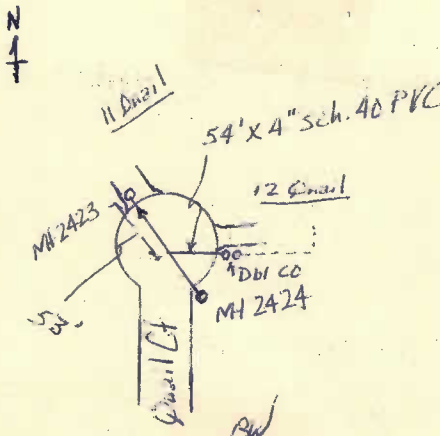 N
11 Quail
54' X 4" Sch. 40 PVC
12 Quail
MH 2423
Dbl CO
MH 2424
53'
Quail Ct